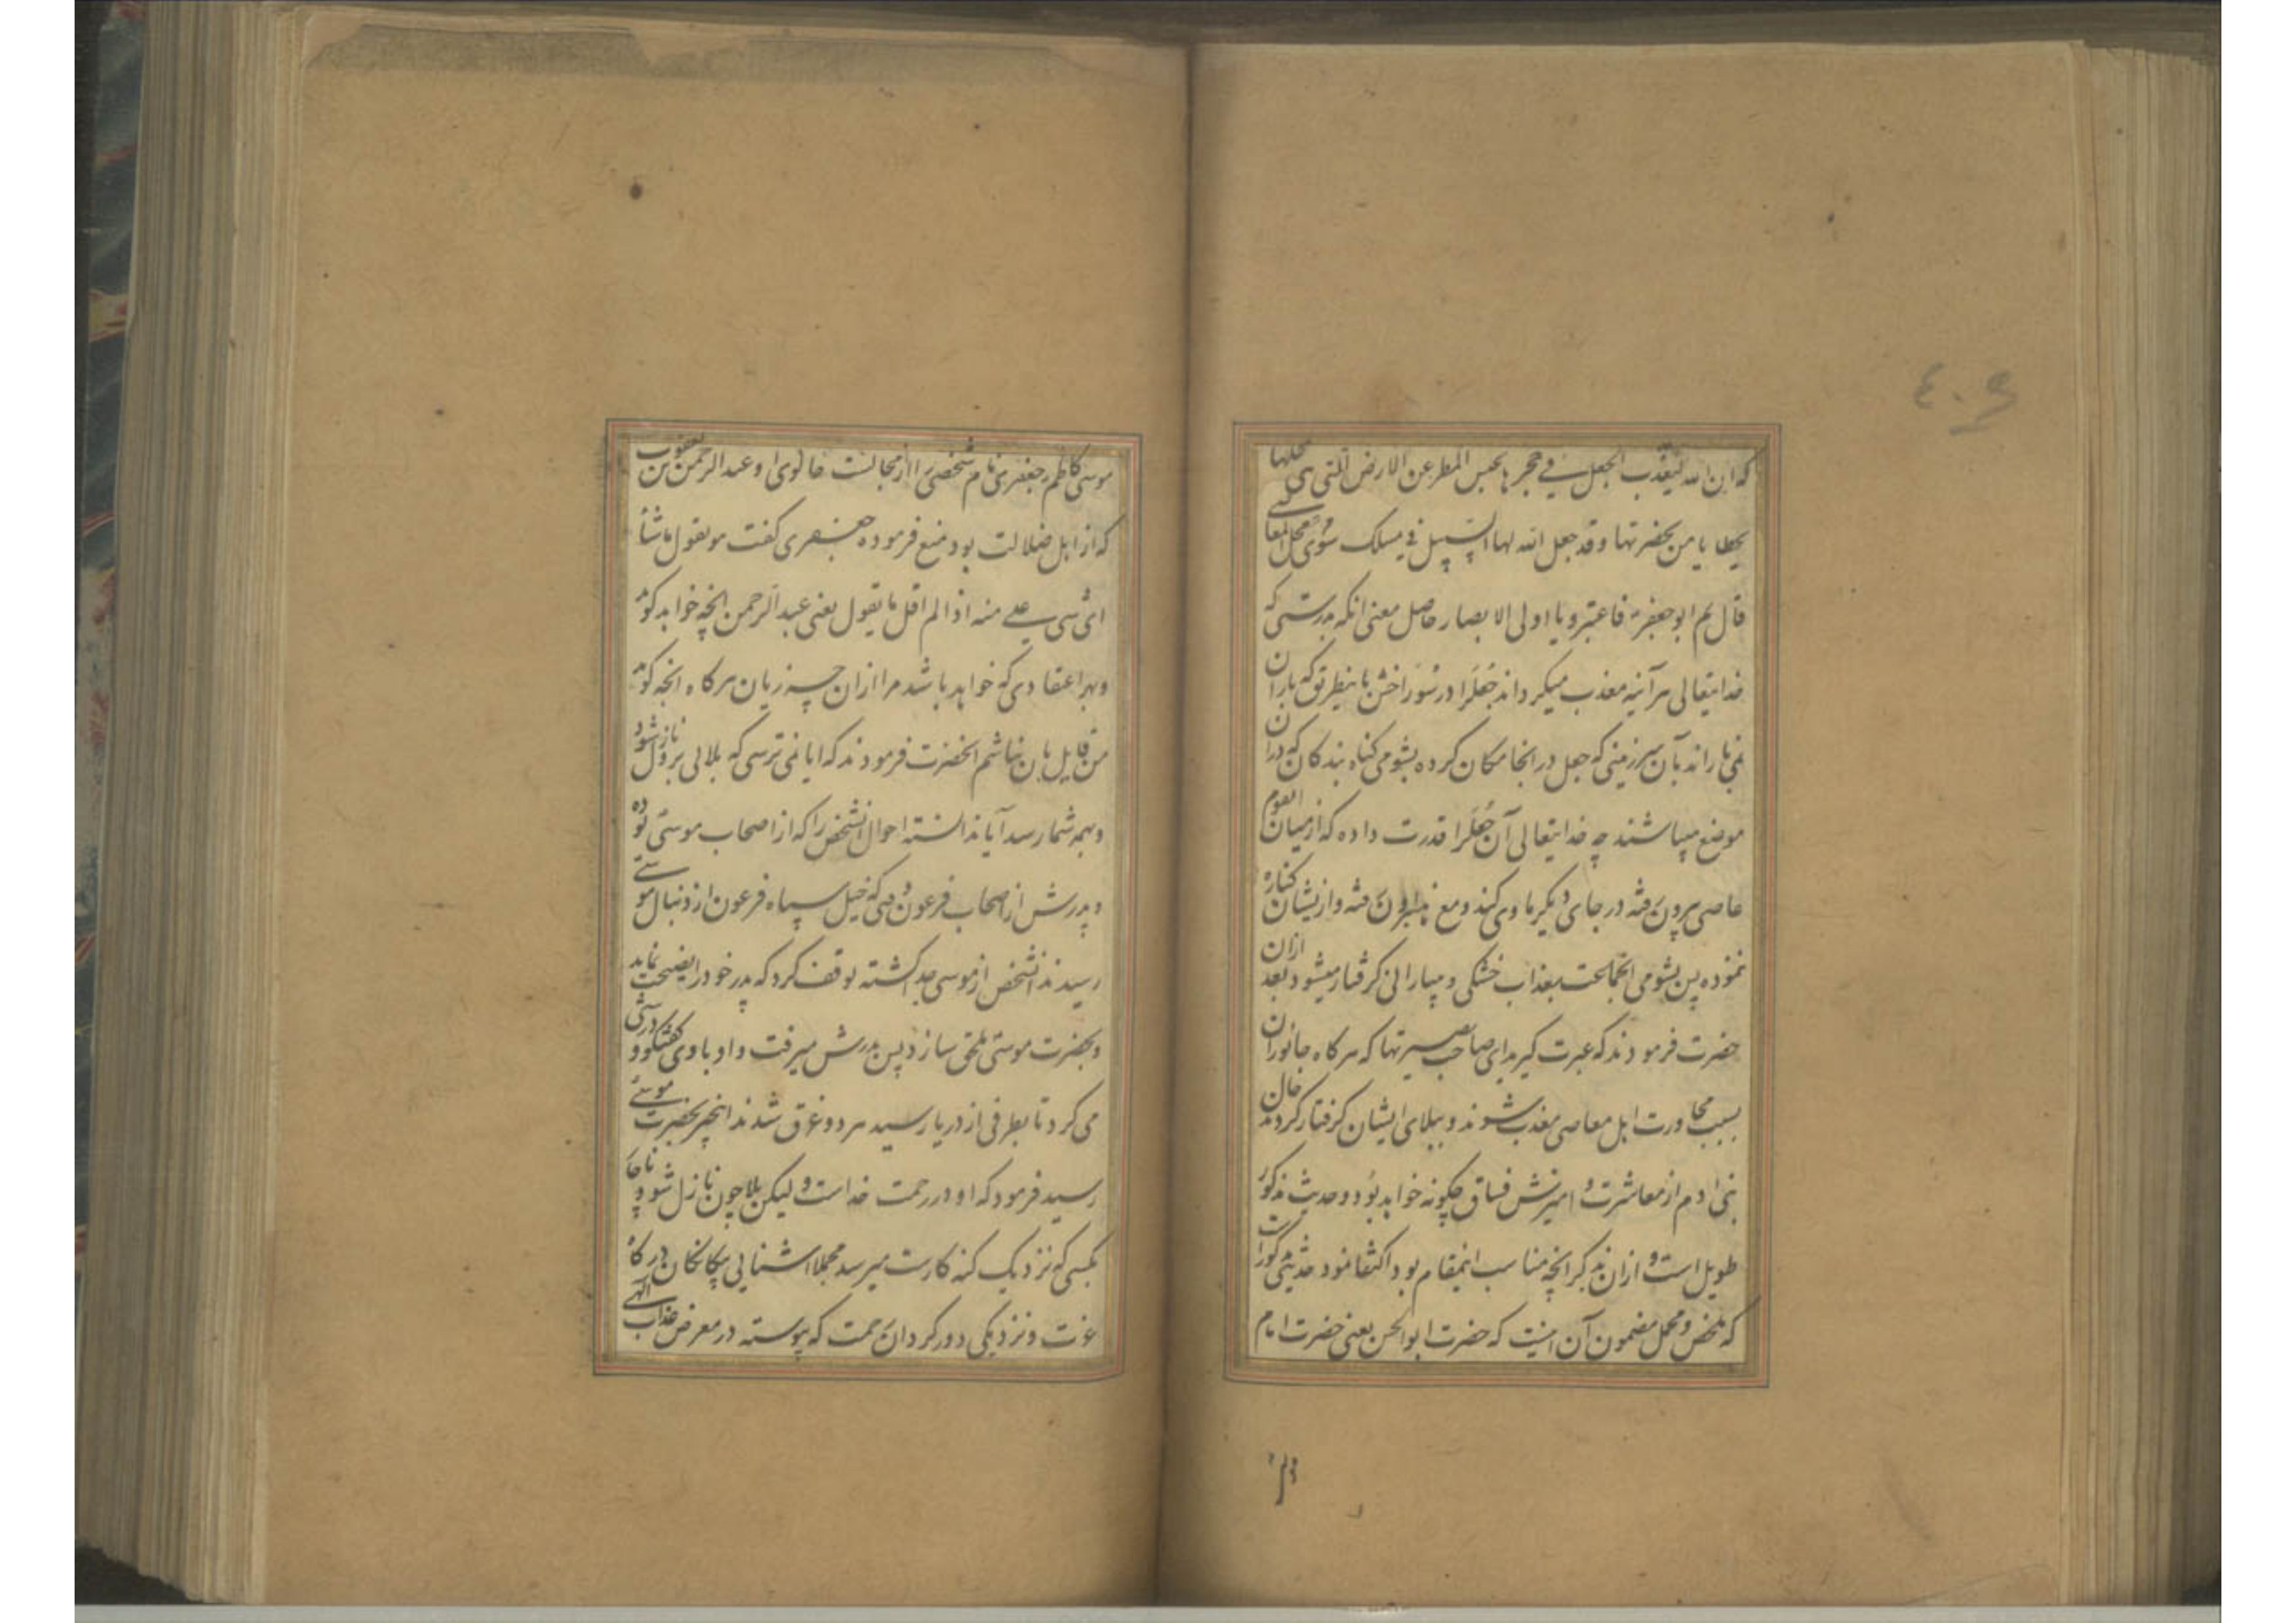 ٤٠٩
که ان الله لیعذب الجعل فی حجرها بحبس المطر عن الارض التی هی بمحلها
بخطایا من بحضرتها و قد جعل الله لها السبیل فی مسلک سوی محل المعاصی
قال ثم ابوجعفر فاعتبروا یا اولی الابصار حاصل معنی انکه بدرستی که
خدایتعالی هر آینه معذب میکرداند جعلرا در سوراخش باینطریق که باران
نمی باراند بآن سرزمینی که جعل در انجا مکان کرده بشومی کناه بندکان که دران
موضع میباشند چه خدایتعالی آن جعلرا قدرت داده که از میان القوم
عاصی بیرون رفته در جای دیکر ماوی کند و مع هذا بیرون نرفته و از یشان کناره
ننموده پس بشومی انمجالست بعذاب خشکی و بیبارانی کرفتار میشود بعد ازان
حضرت فرمودند که عبرت کیرید ای صاحب بصیرتها که هرکاه جانوران
بسبب مجاورت اهل معاصی معذب شوند و ببلای ایشان کرفتار کردند حال
بنی ادم از معاشرت و امیزش فساق چکونه خواهد بود و حدیث مذکور
طویل است و ازان بذکر انچه مناسب اینمقام بود اکتفا نمود حدیثی مذکور است
که ملخص و مجمل مضمون آن اینست که حضرت ابوالحسن یعنی حضرت امام
موسی کاظم جعفری نام شخصی را از مجالست خالوی او عبدالرحمن بن یعقوب
که از اهل ضلالت بود منع فرموده جعفری کفت هو یقول ماشأ
ای شی علی منه اذا لم اقل ما یقول یعنی عبدالرحمن انچه خواهد کوید
و بهر اعتقادی که خواهد باشد مرا ازان چه زیان هرکاه انچه کوید
من قایل بان نباشم انحضرت فرمودند که ایا نمی ترسی که بلائی برو نازل شود
و بهمه شما رسد آیا ندانسته احوال انشخص را که از اصحاب موسی بوده
و پدرش از اصحاب فرعون و دمی که خیل سپاه فرعون از دنبال موسی
رسیدند انشخص از موسی جدا کشته توقف کرد که پدر خود را نصیحت نماید
و بحضرت موسی ملحق سازد پس پدرش میرفت و او با وی کفتکو و درشتی
می کرد تا بطرفی از دریا رسید هر دو غرق شدند اینخبر بحضرت موسی
رسید فرمود که او در رحمت خداست و لیکن بلا چون نازل شود ناچار
بکسی که نزدیک کنه کارست میرسد مجملا اشنایی بیکانکان درکاه
عزت و نزدیکی دورکردان رحمت که پیوسته در معرض عذاب الهی